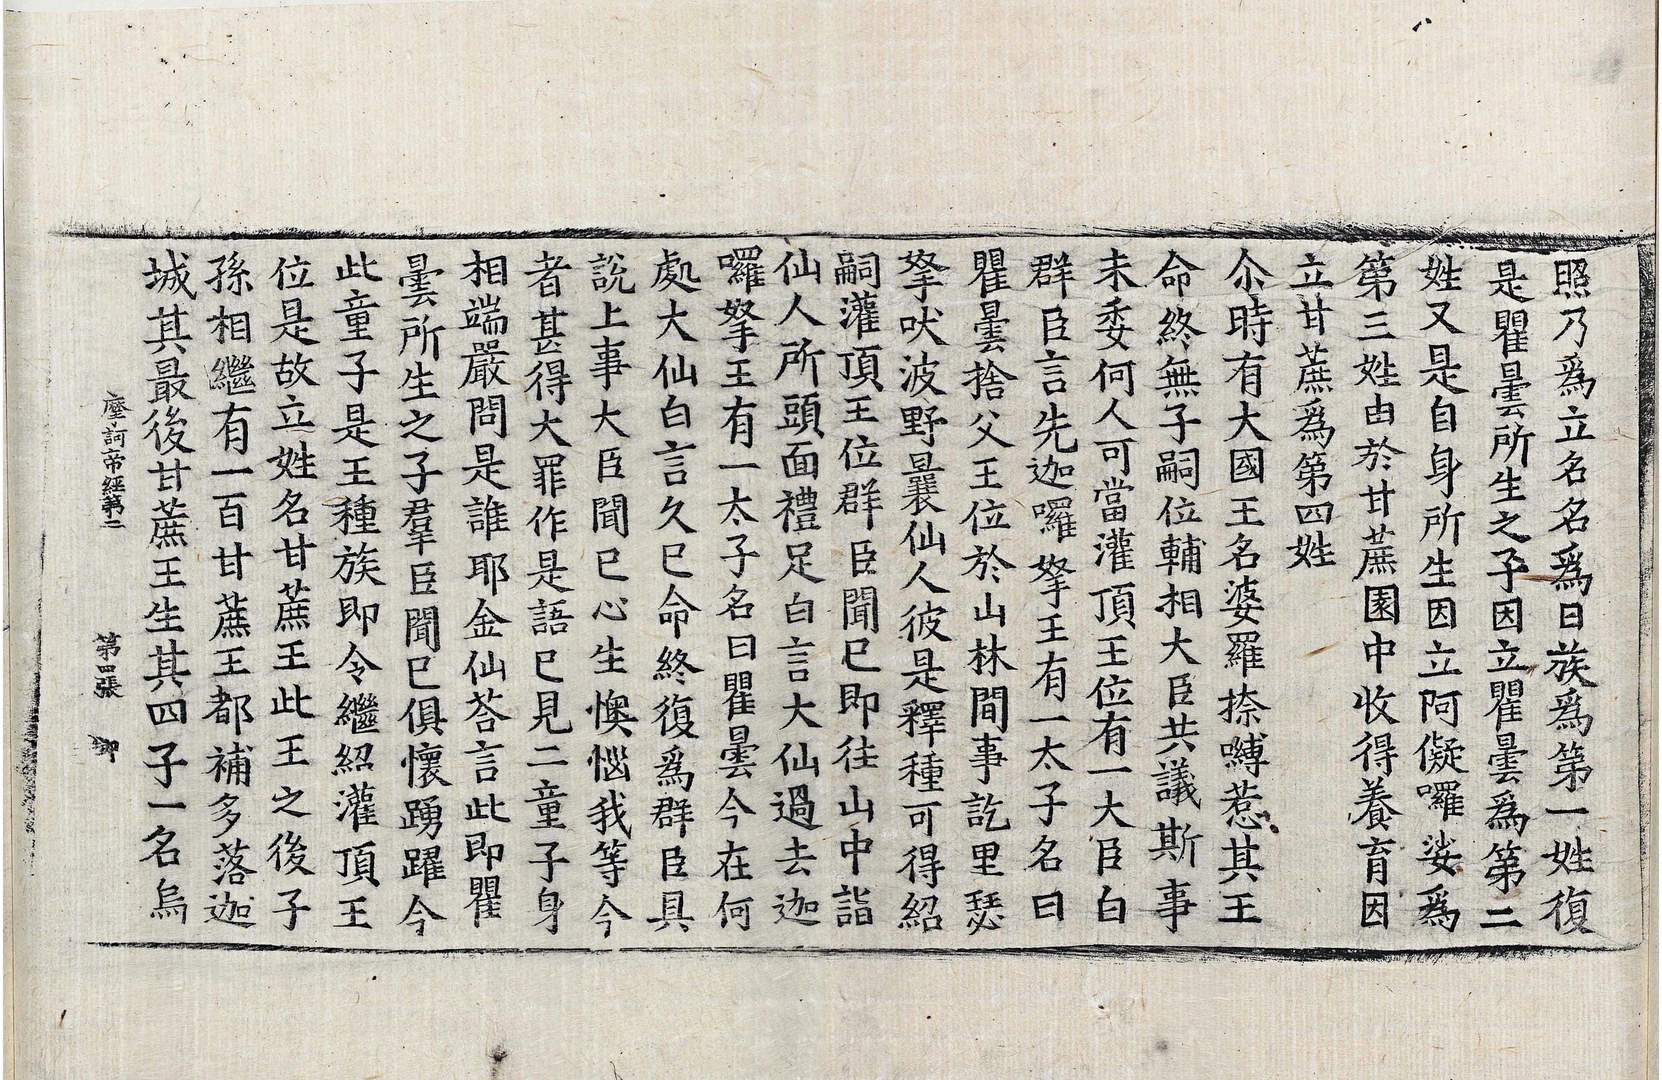 照乃爲立名名爲日族爲第一姓復
是瞿曇所生之子因立瞿曇爲第二
姓又是自身所生因立阿儗囉娑爲
第三姓由於甘蔗園中收得養育因
立甘蔗爲第四姓
尒時有大國王名婆羅捺嚩惹其王
命終無子嗣位輔相大臣共議斯事
未委何人可當灌頂王位有一大臣白
群臣言先迦囉拏王有一太子名曰
瞿曇捨父王位於山林間事訖里瑟
拏吠波野曩仙人彼是釋種可得紹
嗣灌頂王位群臣聞已即往山中詣
仙人所頭面禮足白言大仙過去迦
囉拏王有一太子名曰瞿曇今在何
處大仙白言久已命終復爲群臣具
說上事大臣聞已心生懊惱我等今
者甚得大罪作是語已見二童子身
相端嚴問是誰耶金仙荅言此即瞿
曇所生之子羣臣聞已俱懷踴躍今
此童子是王種族即令繼紹灌頂王
位是故立姓名甘蔗王此王之後子
孫相繼有一百甘蔗王都補多落迦
城其最後甘蔗王生其四子一名烏
摩訶帝經第二 第四張 卿